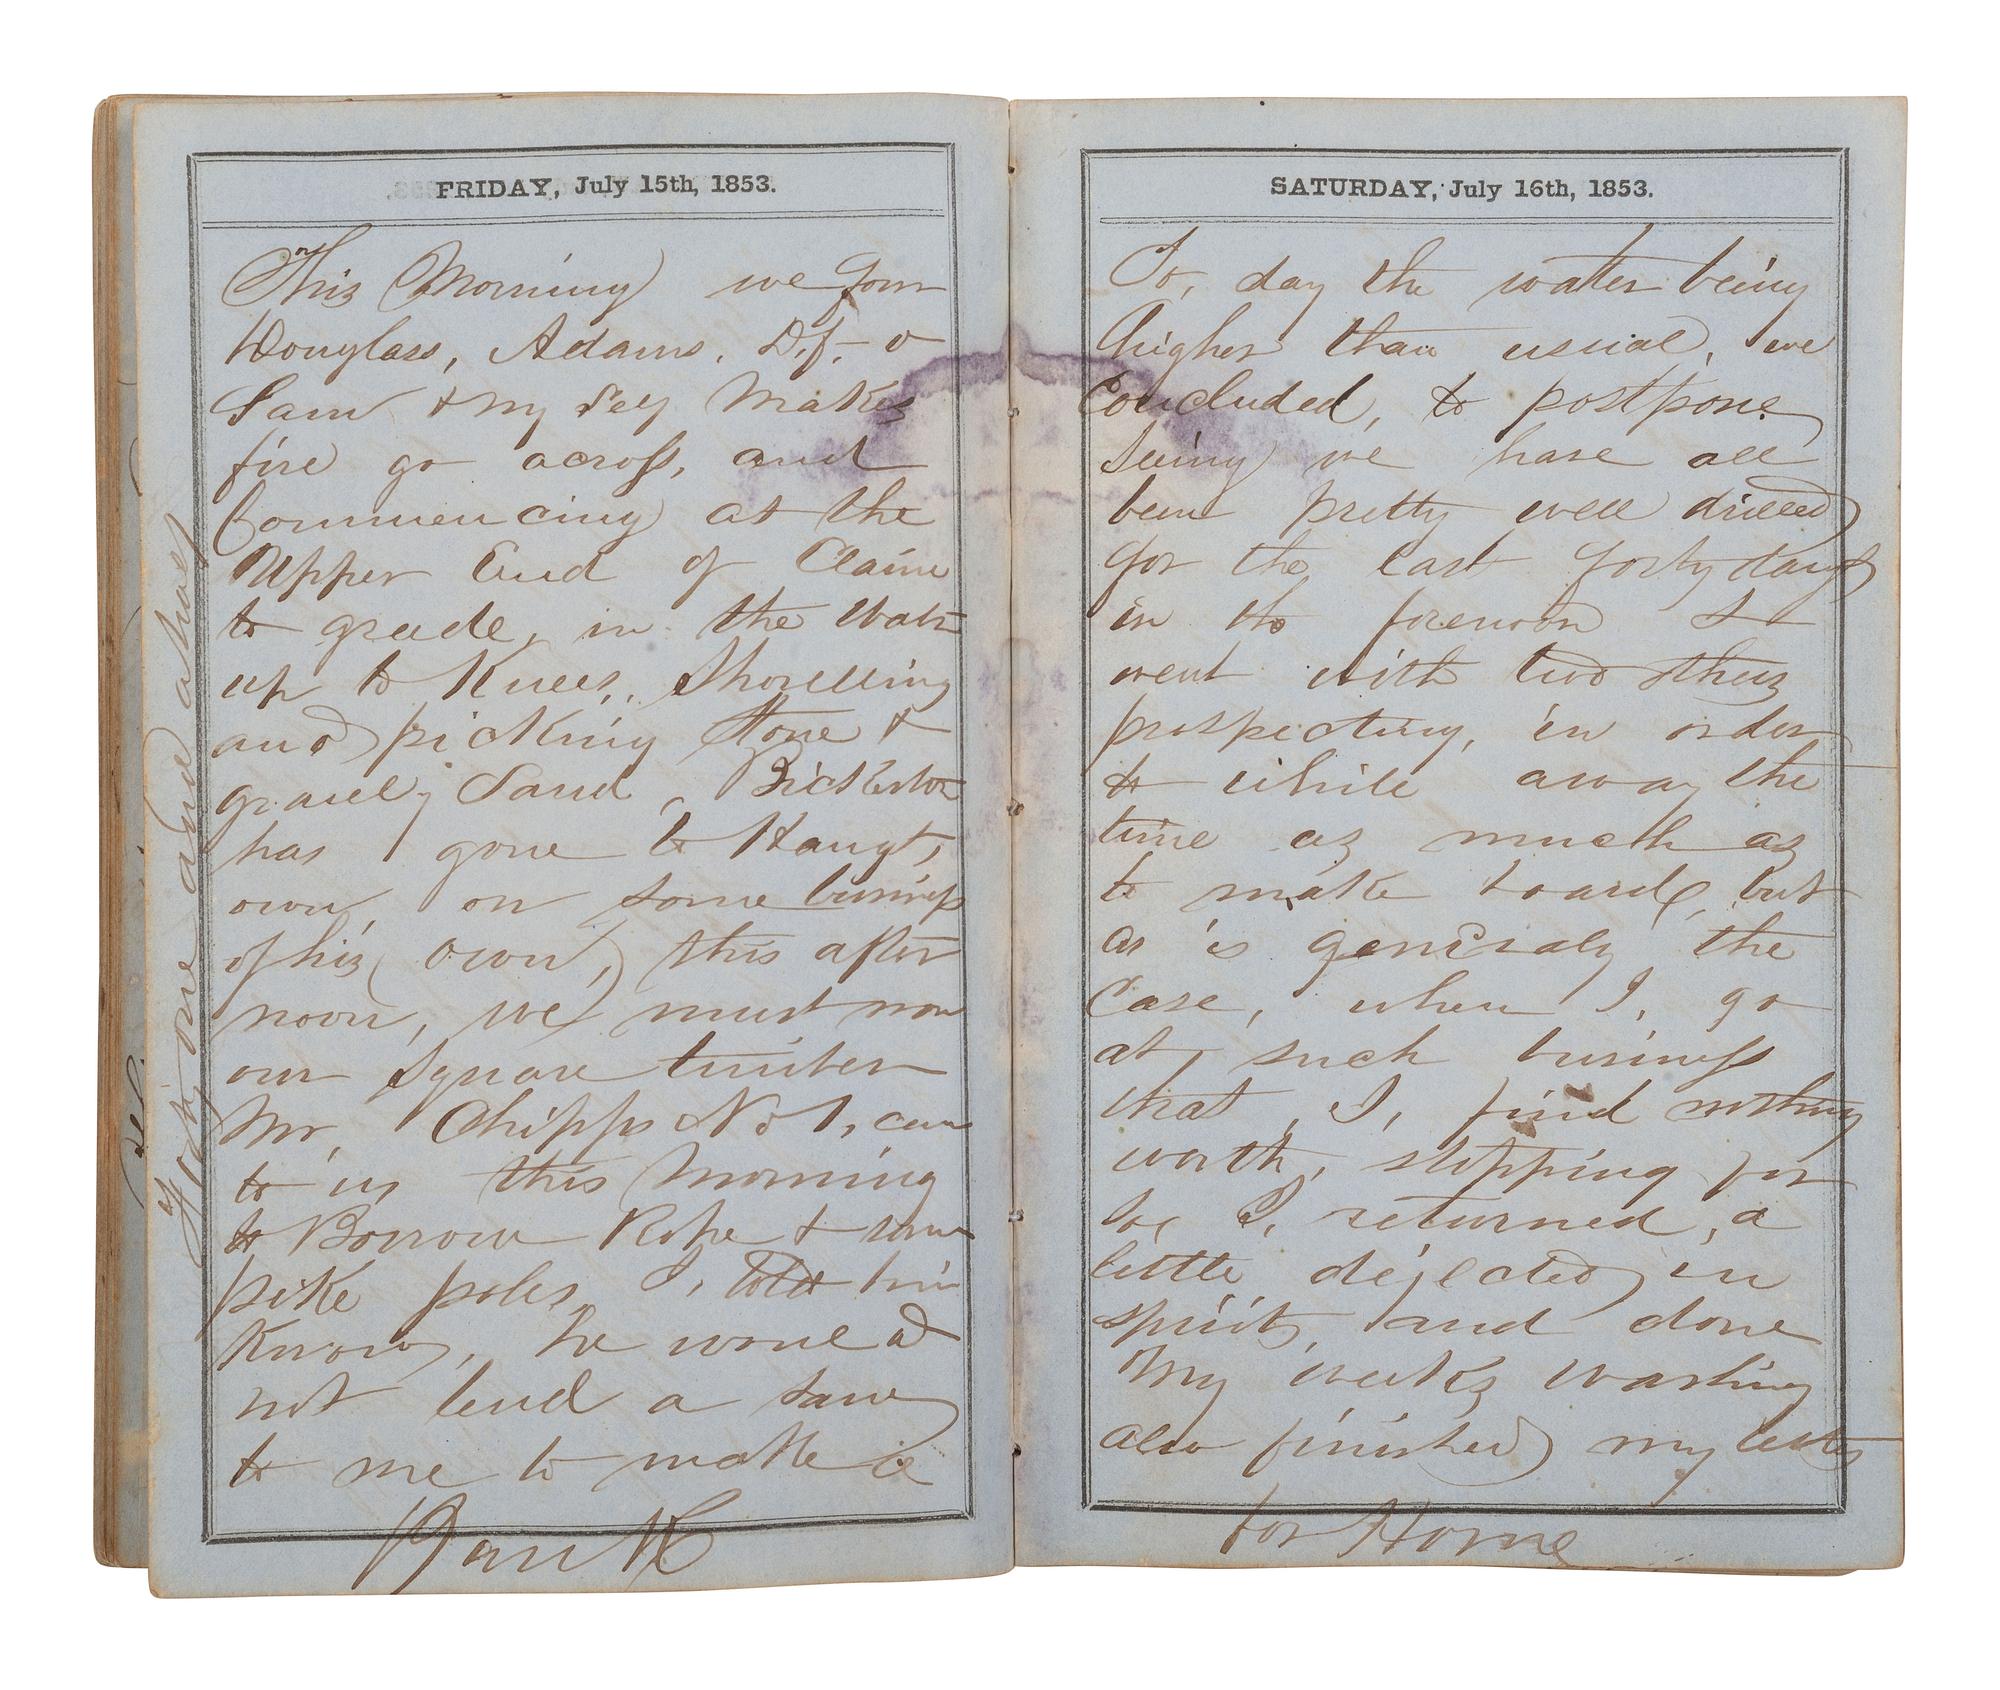 FRIDAY, July 15th, 1853.
This Morning we four
Douglass, Adams, D.f.- o
Sam & my Self Makes
fire go across, and
Commencing at the
Upper End of Claim
to grade, in the Water
up to Knees, Shovelling
and picking Stone &
gravely Sand, Bickerton
has gone to Hangt,
own, on some business
of his own, this after
noon, we must now
our Square timber
Mr, Chipps No 1, came
to us this Morning
to Borrow Rope & some
pike poles, I, told him
Know, he would
not lend a saw
to me to make a
Forty one and a half
SATURDAY, July 16th, 1853.
To, day the water being
higher than usual, we
Concluded, to postpone
Seeing we have all
been pretty well drilled
for the last forty days
in the forenoon I
went with two others
prospecting, in order
to while away the
time as much as
to make board, but
as is generaly the
Case, when I, go
at such business
that, I, find nothing
worth, stopping for
so, I, returned, a
little dejected in
spirits, and done
My weeks washing
also finished my letters
for Home